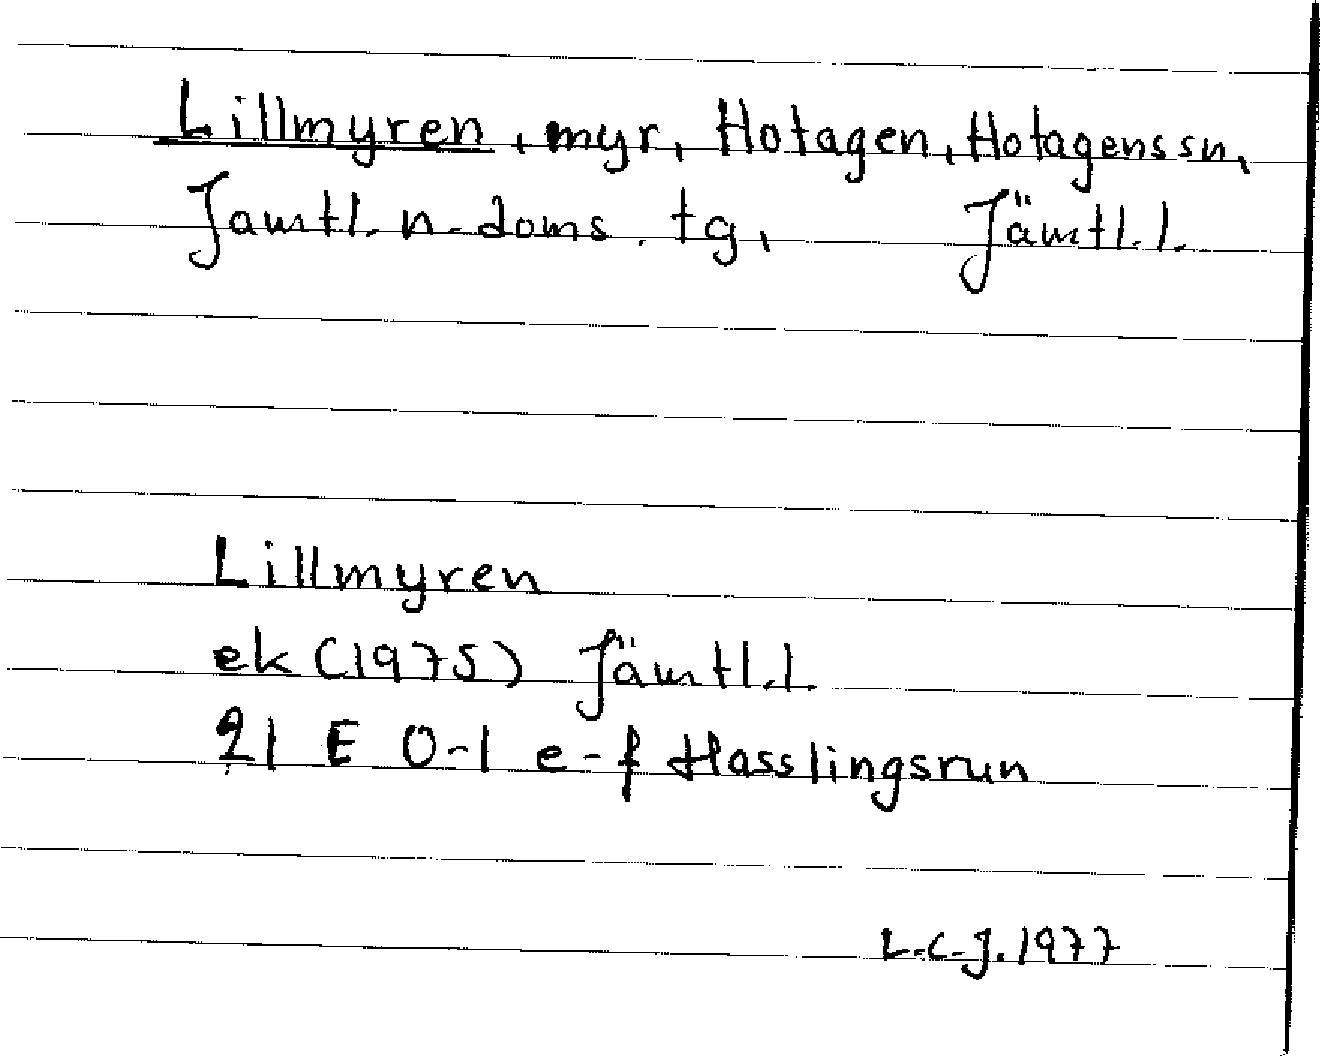 Lillmyren, myr, Hotagen, Hotagens sn,
Jämtl. n. doms. tg, Jämtl. l.
Lillmyren
ek (1975) Jämtl. l.
21 E 0-1 e-f Hasslingsrun
L.C.J. 1977